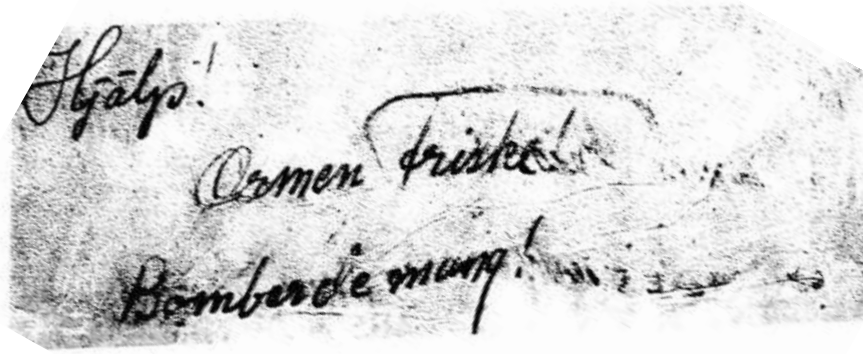 Hjälp!
Ormen friske
Bomberde mang!